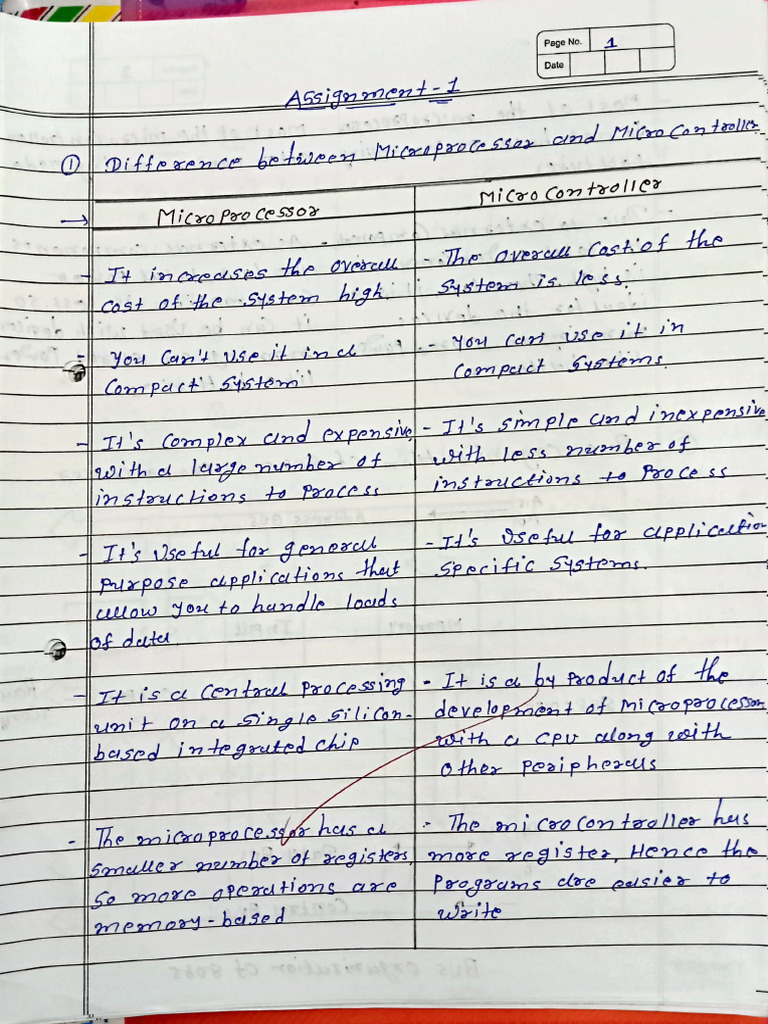 Page No. 1
Date
Assignment-1
① Difference between Microprocessor and Microcontroller
→ Microprocessor
Microcontroller
- It increases the overall
cost of the system high.
- The overall cost of the
system is less.
- You can't use it in a
compact system
- You can use it in
compact systems.
- It's complex and expensive,
with a large number of
instructions to process
- It's simple and inexpensive
with less number of
instructions to process
- It's useful for general
purpose applications that
allow you to handle loads
of data.
- It's useful for application
specific systems.
- It is a central processing
unit on a single silicon-
based integrated chip
- It is a by product of the
development of microprocessor
with a CPU along with
other peripherals
- The microprocessor has a
smaller number of registers,
so more operations are
memory-based
- The microcontroller has
more register, Hence the
programs are easier to
write